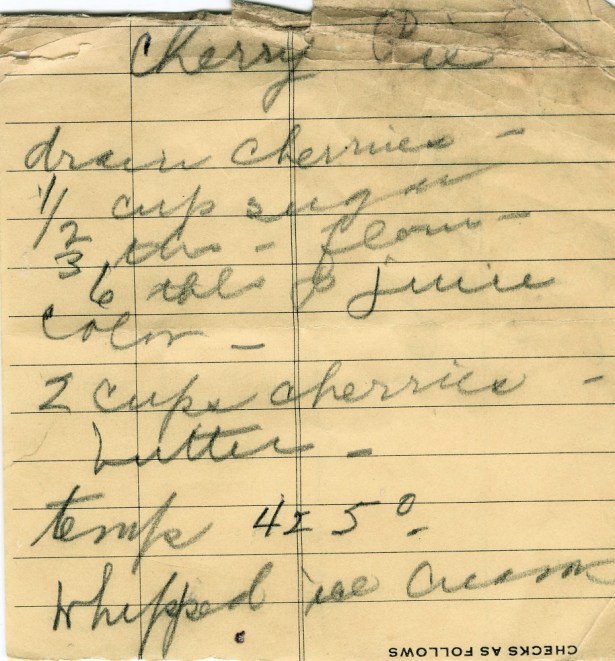 Cherry Pie
drain cherries -
1/2 cup sugar
3 tbs - flour -
6 tbls juice
Color -
2 cups cherries -
butter -
temp 425° -
Whipped ice cream
CHECKS AS FOLLOWS